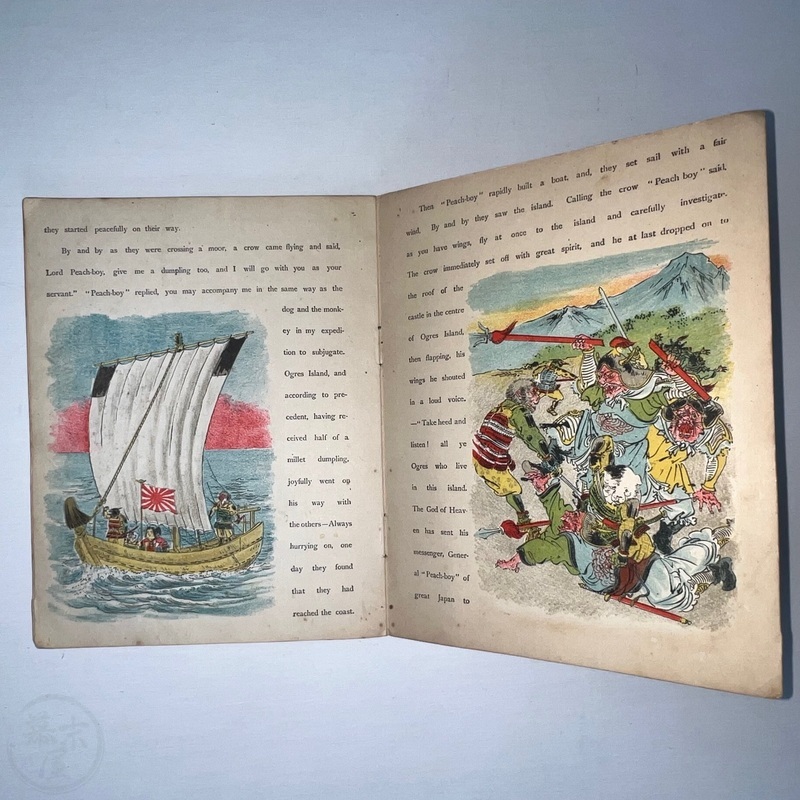 they started peacefully on their way.
By and by as they were crossing a moor, a crow came flying and said,
Lord Peach-boy, give me a dumpling too, and I will go with you as your
servant." "Peach-boy" replied, you may accompany me in the same way as the
dog and the monk-
ey in my expedi-
tion to subjugate.
Ogres Island, and
according to pre-
cedent, having re-
ceived half of a
millet dumpling,
joyfully went on
his way with
the others—Always
hurrying on, one
day they found
that they had
reached the coast.
Then "Peach-boy" rapidly built a boat, and, they set sail with a fair
wind. By and by they saw the island. Calling the crow "Peach boy" said,
as you have wings, fly at once to the island and carefully investigate.
The crow immediately set off with great spirit, and he at last dropped on to
the roof of the
castle in the centre
of Ogres Island,
then flapping, his
wings he shouted
in a loud voice.
—"Take heed and
listen! all ye
Ogres who live
in this island.
The God of Heav-
en has sent his
messenger, Gener-
al "Peach-boy" of
great Japan to
幕末屋